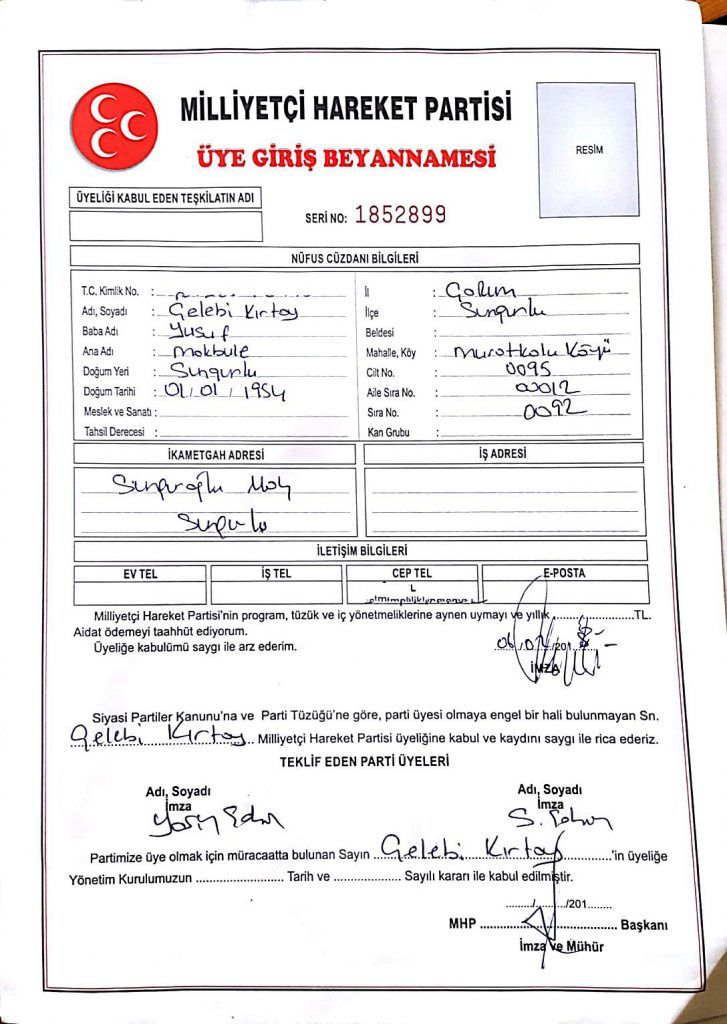 MİLLİYETÇİ HAREKET PARTİSİ
ÜYE GİRİŞ BEYANNAMESİ
RESİM
ÜYELİĞİ KABUL EDEN TEŞKİLATIN ADI
SERİ NO: 1852899
NÜFUS CÜZDANI BİLGİLERİ
T.C. Kimlik No. :
Adı, Soyadı : Çelebi Kırtay
Baba Adı : Yusuf
Ana Adı : Makbule
Doğum Yeri : Sungurlu
Doğum Tarihi : 01/01/1954
Meslek ve Sanatı :
Tahsil Derecesi :
İl : Çorum
İlçe : Sungurlu
Beldesi :
Mahalle, Köy : Muratkolu Köyü
Cilt No. : 0095
Aile Sıra No. : 00012
Sıra No. : 0092
Kan Grubu :
İKAMETGAH ADRESİ
Sunguroğlu Mah
Sungurlu
İŞ ADRESİ
İLETİŞİM BİLGİLERİ
EV TEL
İŞ TEL
CEP TEL
E-POSTA
Milliyetçi Hareket Partisi'nin program, tüzük ve iç yönetmeliklerine aynen uymayı ve yıllık ........................TL.
Aidat ödemeyi taahhüt ediyorum.
Üyeliğe kabulümü saygı ile arz ederim.
İMZA
Siyasi Partiler Kanunu'na ve Parti Tüzüğü'ne göre, parti üyesi olmaya engel bir hali bulunmayan Sn.
Çelebi Kırtay.. Milliyetçi Hareket Partisi üyeliğine kabul ve kaydını saygı ile rica ederiz.
TEKLİF EDEN PARTİ ÜYELERİ
Adı, Soyadı
İmza
Adı, Soyadı
İmza
Partimize üye olmak için müracaatta bulunan Sayın ..Çelebi Kırtay............'in üyeliğe
Yönetim Kurulumuzun ........................ Tarih ve .................. Sayılı kararı ile kabul edilmiştir.
......../......../201........
MHP ..................................... Başkanı
İmza ve Mühür